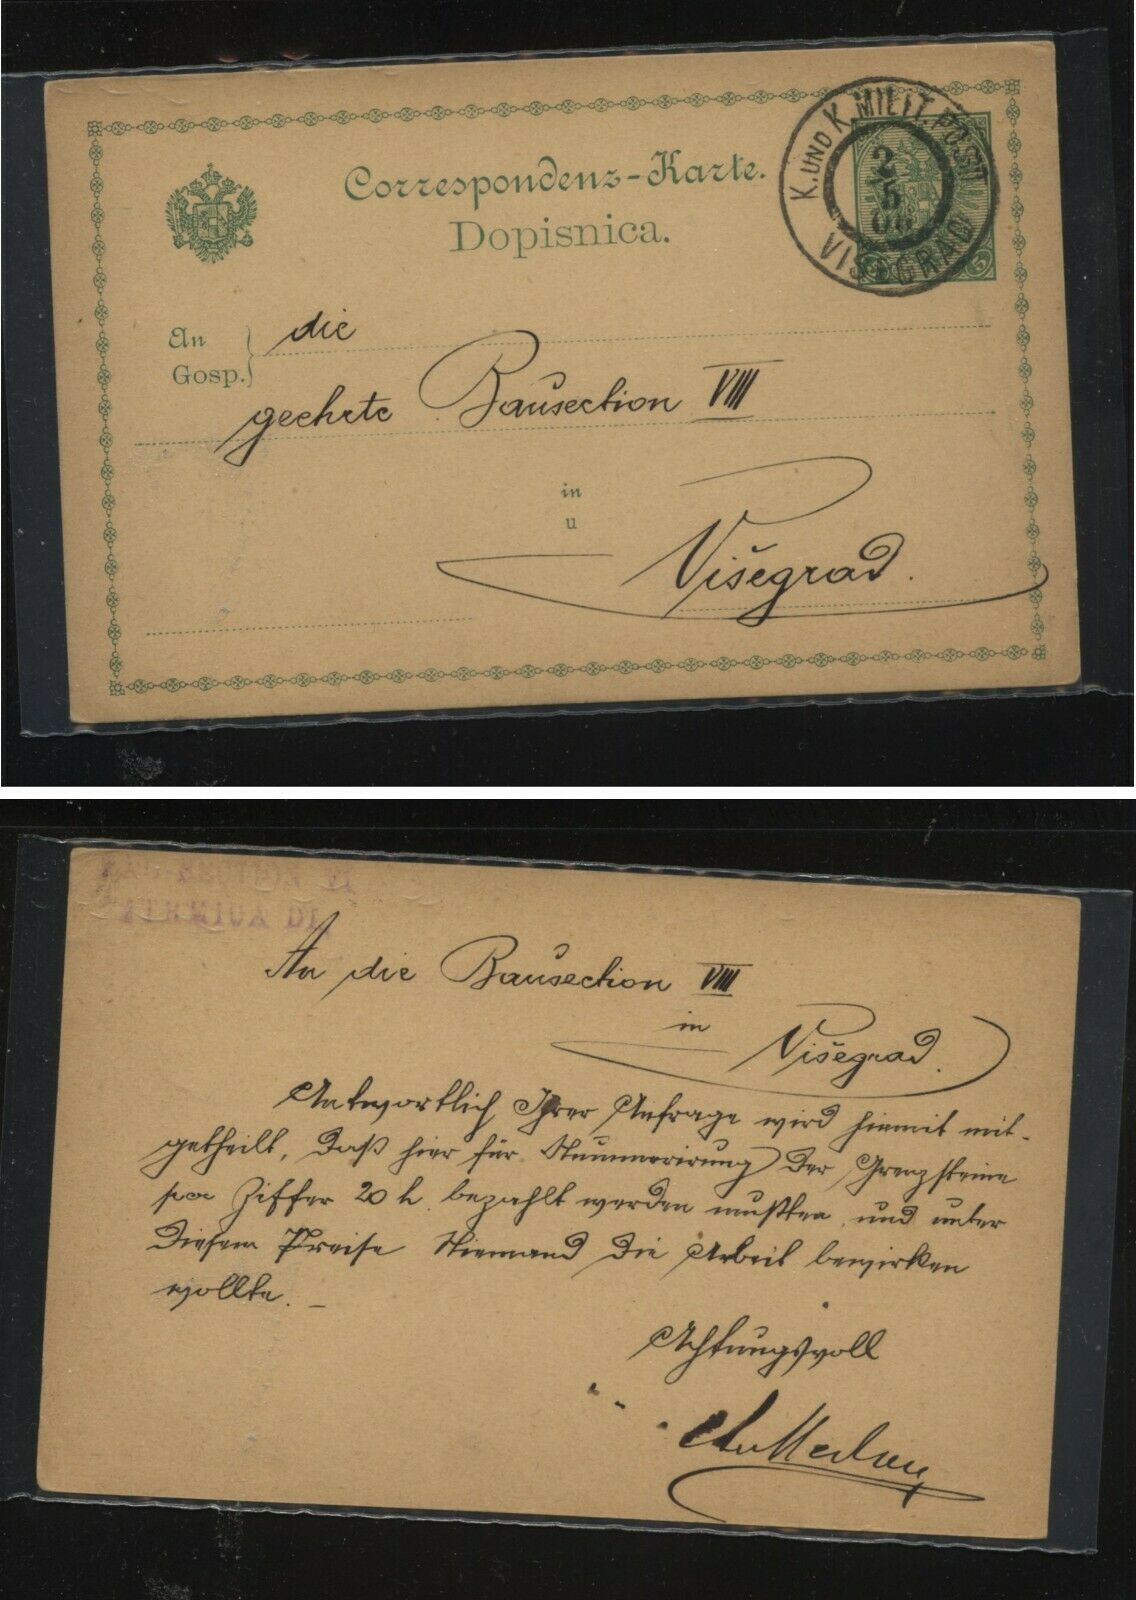 Correspondenz-Karte.
Dopisnica.
K. UND K. MILIT. POST
2
5
VISEGRAD
5
An
Gosp.
die
geehrte Bausection VIII
in
u
Višegrad.
An die Bausection VIII
in
Višegrad.
Antwortlich Ihrer Anfrage wird hiemit mit-
getheilt, daß hier für Nummerirung der Grenzsteine
per Ziffer 20 h. bezahlt werden mußten, und unter
diesem Preise Niemand die Arbeit bewirken
wollte.
Achtungsvoll